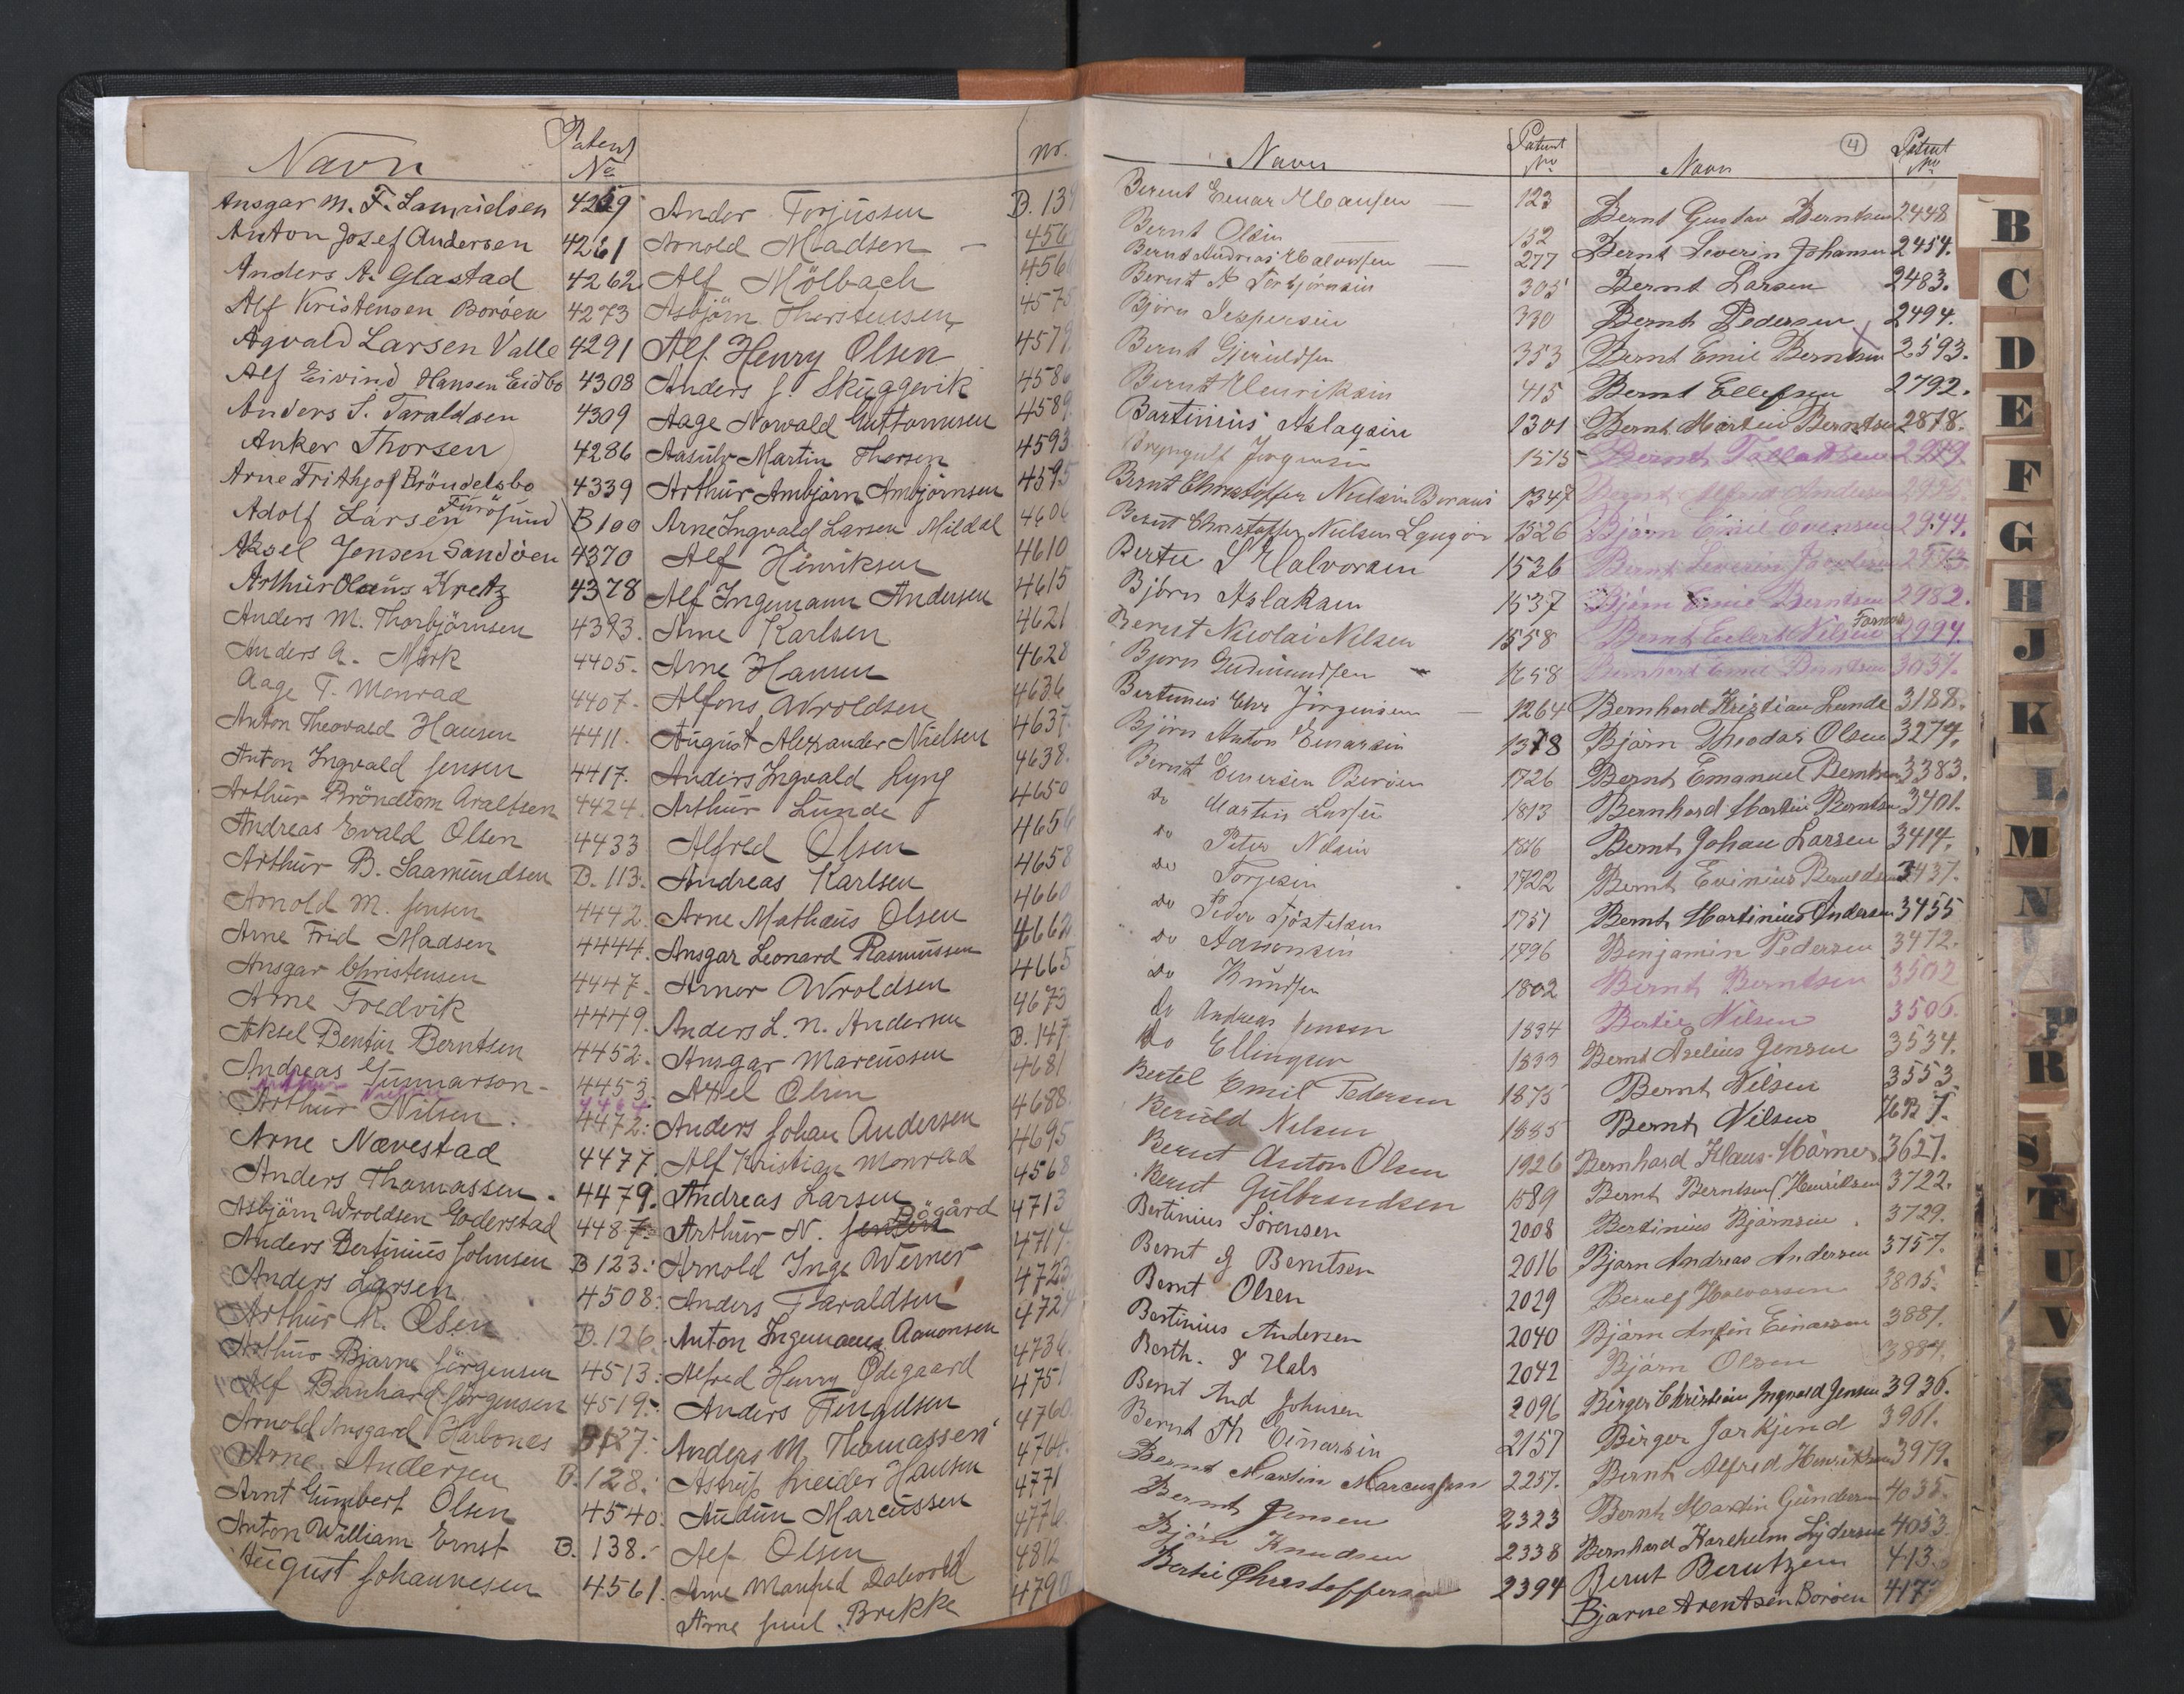 Navn
Patent
No
Ansgar M. F. Lauridsen 4259
Anton Josef Andersen 4261
Anders A. Glastad 4262
Alf Kristensen Boröen 4273
Agvald Larsen Valle 4291
Alf Eivind Hansen Eidbo 4308
Anders S. Taraldsen 4309
Anker Thorsen 4286
Arne Frithjof Bröndelsbo 4339
Adolf Larsen Furöysund B 100
Aksel Jensen Sandöen 4370
Arthur Olaus Kretz 4378
Anders M. Thorbjörnsen 4393.
Anders A. Mörk 4405.
Aage T. Monrad 4407.
Anton Theovald Hansen 4411.
Anton Ingvald Jensen 4417.
Arthur Bröndbom Araltsen 4424.
Andreas Evald Olsen 4433
Arthur B. Saamundsen B. 113.
Arnold M. Jensen 4442.
Arne Frid Madsen 4444.
Ansgar Christensen 4447.
Arne Fredvik 4449.
Aksel Bentin Berntsen 4452.
Andreas Gunnarson - 4453.
Arthur Nilsen. 4472.
Arne Nævestad 4477.
Anders Thomassen. 4479.
Asbjörn Wroldsen Goderstad 4487.
Anders Bertinius Johnsen B 123.
Anders Larsen 4508.
Arthur R. Olsen B. 126.
Arthur Bjarne Jörgensen 4513.
Alf Bernhard Jörgensen 4519.
Arnold Ansgard Harbones B 127.
Arne Andersen B. 128.
Arnt Gunbert Olsen 4540.
Anton William Ernst B. 138.
August Johannesen 4561.
nr.
Ander Torjussen B. 13
Arnold Madsen - 456
Alf Mölbach 456
Asbjörn Thorstensen 4575
Alf Henry Olsen 4579
Anders J. Skuggevik 4586
Aage Norwald Guttormsen 4589
Aasulv Martin Thorsen 4593
Arthur Ambjörn Ambjörnsen 4595
Arne Ingvald Larsen Mildal 4606
Alf Hinriksen 4610
Alf Ingemann Andersen 4615
Arne Karlsen 4621
Arne Hansen 4628
Alfons Wroldsen 4636
August Alexander Nielsen 4637.
Anders Ingvald Lyng 4638.
Arthur Lunde 4650
Alfred Olsen 4656
Andreas Karlsen 4658
Arne Mathæus Olsen 4660
Ansgar Leonard Rasmussen 4662
Arnor Wroldsen 4665
Anders L. N. Andersen 4673
Ansgar Marcussen B. 147
Axel Olsen 4681
Anders Johan Andersen 4688
Alf Kristian Monrad 4695
Andreas Larsen 4568
Arthur N. Jensen Bögård 4713
Arnold Inge Werner 4714
Anders Taraldsen 4723
Anton Ingemann Aanonsen 472
Alfred Henry Ödegaard 4736
Anders Fingulsen 4751
Anders M. Thomassen 4760
Astrup Sneider Hansen 4764.
Audun Marcussen 4771
Alf Olsen 4776
Arne Manfred Dalevold 4812
Arne Juul Brekke 4790
Navn
Patent
No
Berent Einar Hansen — 123
Bernt Olsen 152
Bernt Andreas Halvorsen — 277
Bernt A Torbjörnsen 305
Björn Jespersen 330
Bernt Gjeruldsen 353
Bernt Henriksen 415
Bartinius Aslagsen 1301
Brynyulf Jörgensen 1515
Bernt Christoffer Nielsen Boraas 1347
Bernt Christoffer Nielsen Lyngör 1526
Bertie S Halvorsen 1536
Björn Aslaksen 1537
Bernt Nicolai Nilsen 1558
Bjorn Gudmundsen 1658
Bertinius Chr Jörgensen — 1264
Björn Anton Einarsen 1378
Bernt Einersen Boröen 1726
do Martin Larsen 1813
do Peter Nilsen 1816
do Torjesen 1722
do Peder Tjöstelsen 1751
do Aanonsen 1796
do Knudsen 1802
do Andreas Jensen 1834
do Ellingsen 1833
Bertel Emil Pedersen 1875
Beruld Nilsen 1885
Bernt Anton Olsen 1926
Bernt Gulbrandsen 1589
Bertinius Sörensen 2008
Bernt G Berntsen 2016
Bernt Olsen 2029
Bertinius Andersen 2040
Berth. S Hals 2042
Bernt And Johnsen 2096
Bernt Th Einarsen 2157
Bernt Martin Marcussen 2257.
Bernt Jensen 2323
Björn Knudsen 2338
Bertie Christoffersen 2394
Navn
4
Patent
No
Bernt Gustav Berntsen 2448
Bernt Severin Johansen 2454.
Bernt Larsen 2483.
Bernt Pedersen 2494.
Bernt Emil Berntsen 2593.
Bernt Ellefsen 2792.
Bernt Martin Berntsen 2878.
Bernt 2919.
Björn Emil Evensen 2944.
Bernt Severin 2973.
Björn Emil Berntsen 2982.
Bernt Eilert Nilsen 2994.
Bernhard Emil Berntsen 3037.
Bernhard Kristian Lunde 3188.
Björn Theodor Olsen 3279.
Bernt Emanuel Berntsen 3383.
Bernhard Martin Berntsen 3401.
Bernt Johan Larsen 3414.
Bernt Evinius Beruldsen 3437.
Bernt Martinius Andersen 3455
Benjamin Pedersen 3472.
Bernt Berntsen 3502
Bertie Nilsen 3506.
Bernt Aselius Jensen 3534.
Bernt Nilsen 3553
Bernt Nilsen
Bernhard Klaus Mörner 3627.
Bernt Berntsen (Henriksen 3722.
Bertinius Björnsen. 3729.
Bjorn Andreas Andersen 3757.
Berulf Halvorsen 3805.
Björn Anfin Einarsen 3881.
Björn Olsen 3884.
Birger Christian Ingvald Jensen 3936.
Birger Jarkjend 3961.
Bernt Alfred Henriksen 3979.
Bernt Martin Gundersen 4035.
Bernhard Karlhelm Lydersen 4053.
Bernt Berntzen 413
Bjarne Arentsen Boröen 417
B
C
D
E
F
G
H
J
K
L
M
N
P
R
S
T
U
V
X